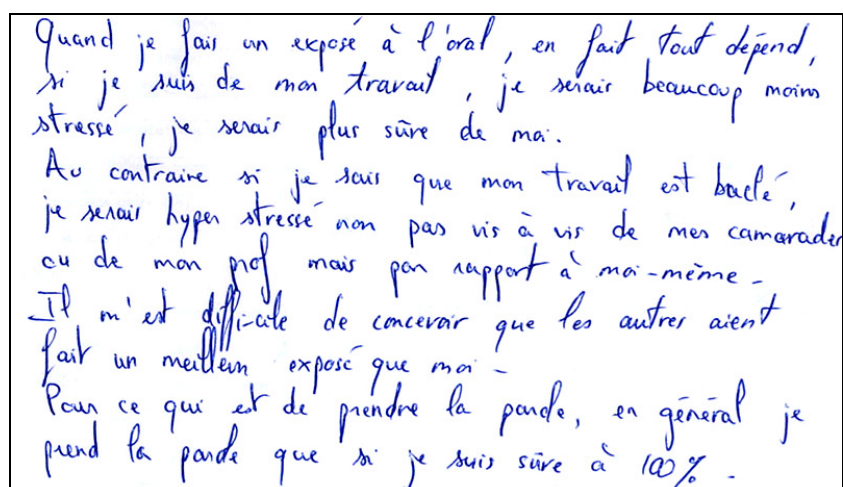 Quand je fais un exposé à l'oral, en fait tout dépend,
si je suis de mon travail, je serais beaucoup moins
stressé, je serais plus sûre de moi.
Au contraire si je sais que mon travail est baclé,
je serais hyper stressé non pas vis à vis de mes camarades
ou de mon prof mais par rapport à moi-même -
Il m'est difficile de concevoir que les autres aient
fait un meilleur exposé que moi -
Pour ce qui est de prendre la parole, en général je
prend la parole que si je suis sûre à 100% -